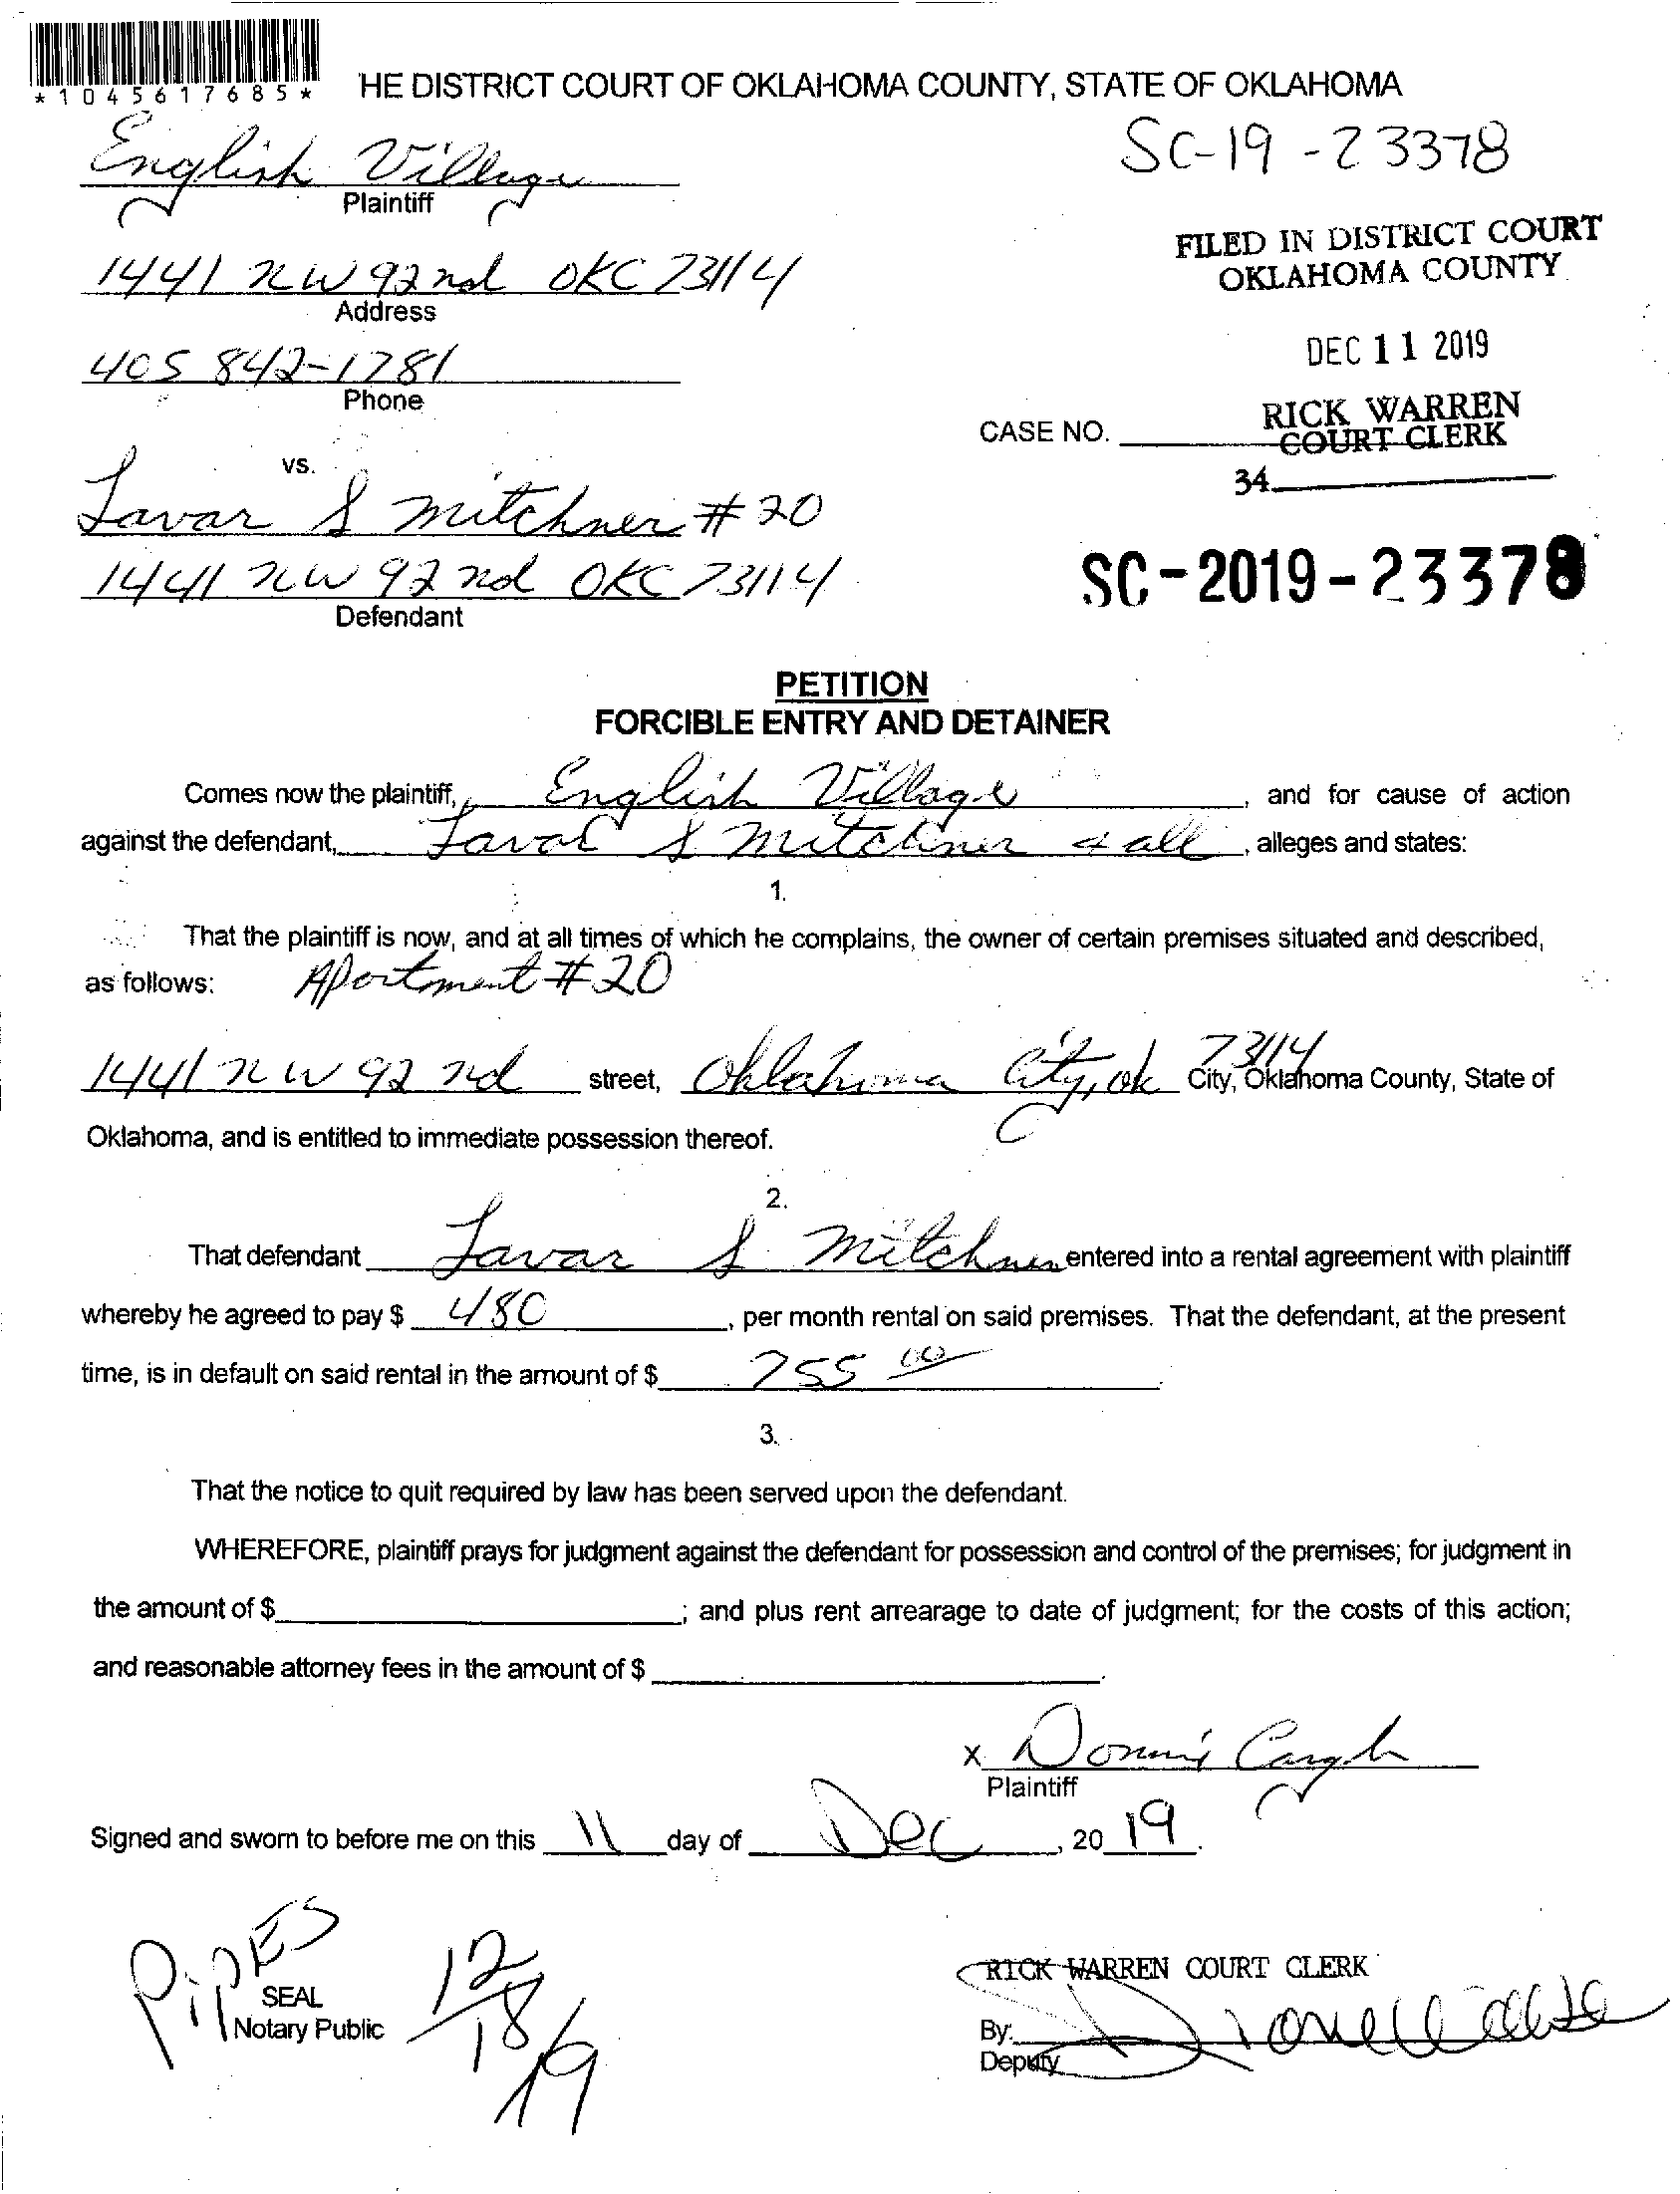 *1045617685*
HE DISTRICT COURT OF OKLAHOMA COUNTY, STATE OF OKLAHOMA
English Village
SC-19-23378
Plaintiff
FILED IN DISTRICT COURT
OKLAHOMA COUNTY
1441 NW 92nd OKC 73114
Address
DEC 11 2019
405 842-1781
Phone
RICK WARREN
CASE NO. COURT CLERK
vs.
34
Lavar S Mitchner #20
1441 NW 92nd OKC 73114
SC-2019-23378
Defendant
PETITION
FORCIBLE ENTRY AND DETAINER
Comes now the plaintiff, English Village, and for cause of action
against the defendant, Lavar S Mitchner & all, alleges and states:
1.
That the plaintiff is now, and at all times of which he complains, the owner of certain premises situated and described,
as follows: Apartment #20
1441 NW 92nd street, Oklahoma City, ok 73114 City, Oklahoma County, State of
Oklahoma, and is entitled to immediate possession thereof.
2.
That defendant Lavar S Mitchner entered into a rental agreement with plaintiff
whereby he agreed to pay $ 480, per month rental on said premises. That the defendant, at the present
time, is in default on said rental in the amount of $ 755 00.
3.
That the notice to quit required by law has been served upon the defendant.
WHEREFORE, plaintiff prays for judgment against the defendant for possession and control of the premises; for judgment in
the amount of $ ; and plus rent arrearage to date of judgment; for the costs of this action;
and reasonable attorney fees in the amount of $ .
X
Plaintiff
Signed and sworn to before me on this 11 day of Dec, 20 19.
PipES
12/18/19
SEAL
Notary Public
RICK WARREN COURT CLERK
By:
Deputy